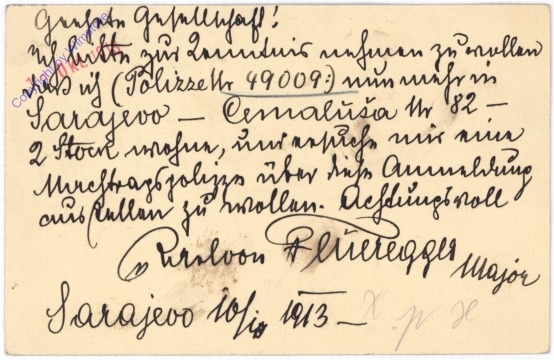 Geehrte Gesellschaft!
Ich bitte zur Kenntnis nehmen zu wollen
daß ich (Polizze Nr 49009:) nunmehr in
Sarajevo — Čemaluša Nr 82 —
2 Stock wohne, und ersuche mir eine
Nachtragspolizze über diese Anmeldung
ausstellen zu wollen. Achtungsvoll
Major
Sarajevo 10/10 1913 —